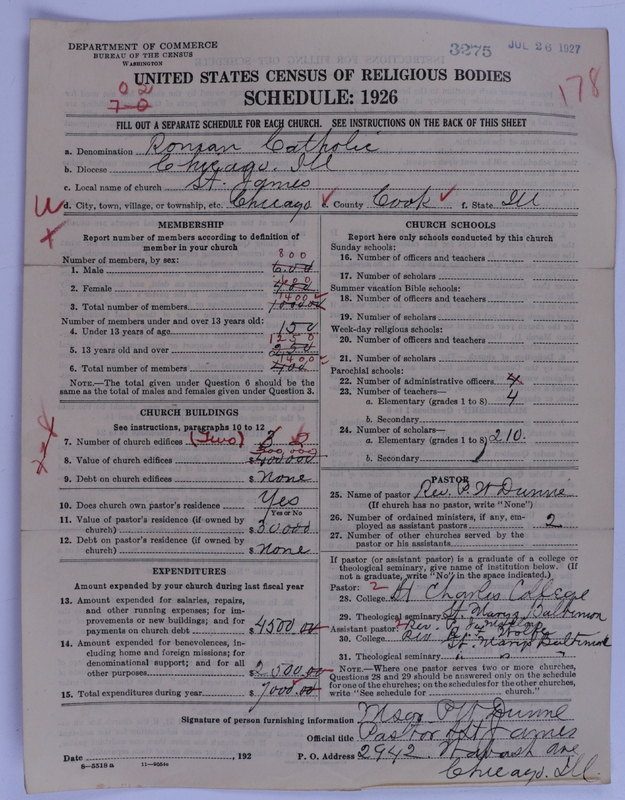 DEPARTMENT OF COMMERCE
BUREAU OF THE CENSUS
WASHINGTON
3275 JUL 26 1927
178
0 2
7-0
UNITED STATES CENSUS OF RELIGIOUS BODIES
SCHEDULE: 1926
FILL OUT A SEPARATE SCHEDULE FOR EACH CHURCH. SEE INSTRUCTIONS ON THE BACK OF THIS SHEET
a. Denomination Roman Catholic
b. Diocese Chicago. Ill
c. Local name of church St. James
d. City, town, village, or township, etc. Chicago e. County Cook f. State Ill
MEMBERSHIP
Report number of members according to definition of
member in your church
Number of members, by sex:
800
1. Male 600
600
2. Female 400
1400
3. Total number of members 1000
Number of members under and over 13 years old:
4. Under 13 years of age 150
1250
5. 13 years old and over 250
1400
6. Total number of members 400
NOTE.—The total given under Question 6 should be the
same as the total of males and females given under Question 3.
CHURCH BUILDINGS
See instructions, paragraphs 10 to 12
7. Number of church edifices (Two) 3 2
8. Value of church edifices $400,000
9. Debt on church edifices $ None
10. Does church own pastor's residence? Yes
Yes or No
11. Value of pastor's residence (if owned by
church) $30,000
12. Debt on pastor's residence (if owned by
church) $ None
EXPENDITURES
Amount expended by your church during last fiscal year
13. Amount expended for salaries, repairs,
and other running expenses; for im-
provements or new buildings; and for
payments on church debt $4500.00
14. Amount expended for benevolences, in-
cluding home and foreign missions; for
denominational support; and for all
other purposes $2500.00
15. Total expenditures during year $7000.00
CHURCH SCHOOLS
Report here only schools conducted by this church
Sunday schools:
16. Number of officers and teachers
17. Number of scholars
Summer vacation Bible schools:
18. Number of officers and teachers
19. Number of scholars
Week-day religious schools:
20. Number of officers and teachers
21. Number of scholars
Parochial schools:
22. Number of administrative officers 4
23. Number of teachers—
a. Elementary (grades 1 to 8) 4
b. Secondary
24. Number of scholars—
a. Elementary (grades 1 to 8) 210
b. Secondary
PASTOR
25. Name of pastor Rev. P. W Dunne
(If church has no pastor, write "None")
26. Number of ordained ministers, if any, em-
ployed as assistant pastors 2
27. Number of other churches served by the
pastor or his assistants
If pastor (or assistant pastor) is a graduate of a college or
theological seminary, give name of institution below. (If
not a graduate, write "No" in the space indicated.)
Pastor: 2
28. College St Charles College
29. Theological seminary St Marys Baltimore
Assistant pastor: Rev.
30. College Rev. Wolfe
St. Marys Baltimore
31. Theological seminary " "
NOTE.—Where one pastor serves two or more churches,
Questions 28 and 29 should be answered only on the schedule
for one of the churches; on the schedules for the other churches,
write "See schedule for church."
Signature of person furnishing information Msgr P W Dunne
Official title Pastor of St James
Date , 192 P. O. Address 2942 Wabash Ave
8—5518 a Chicago. Ill.